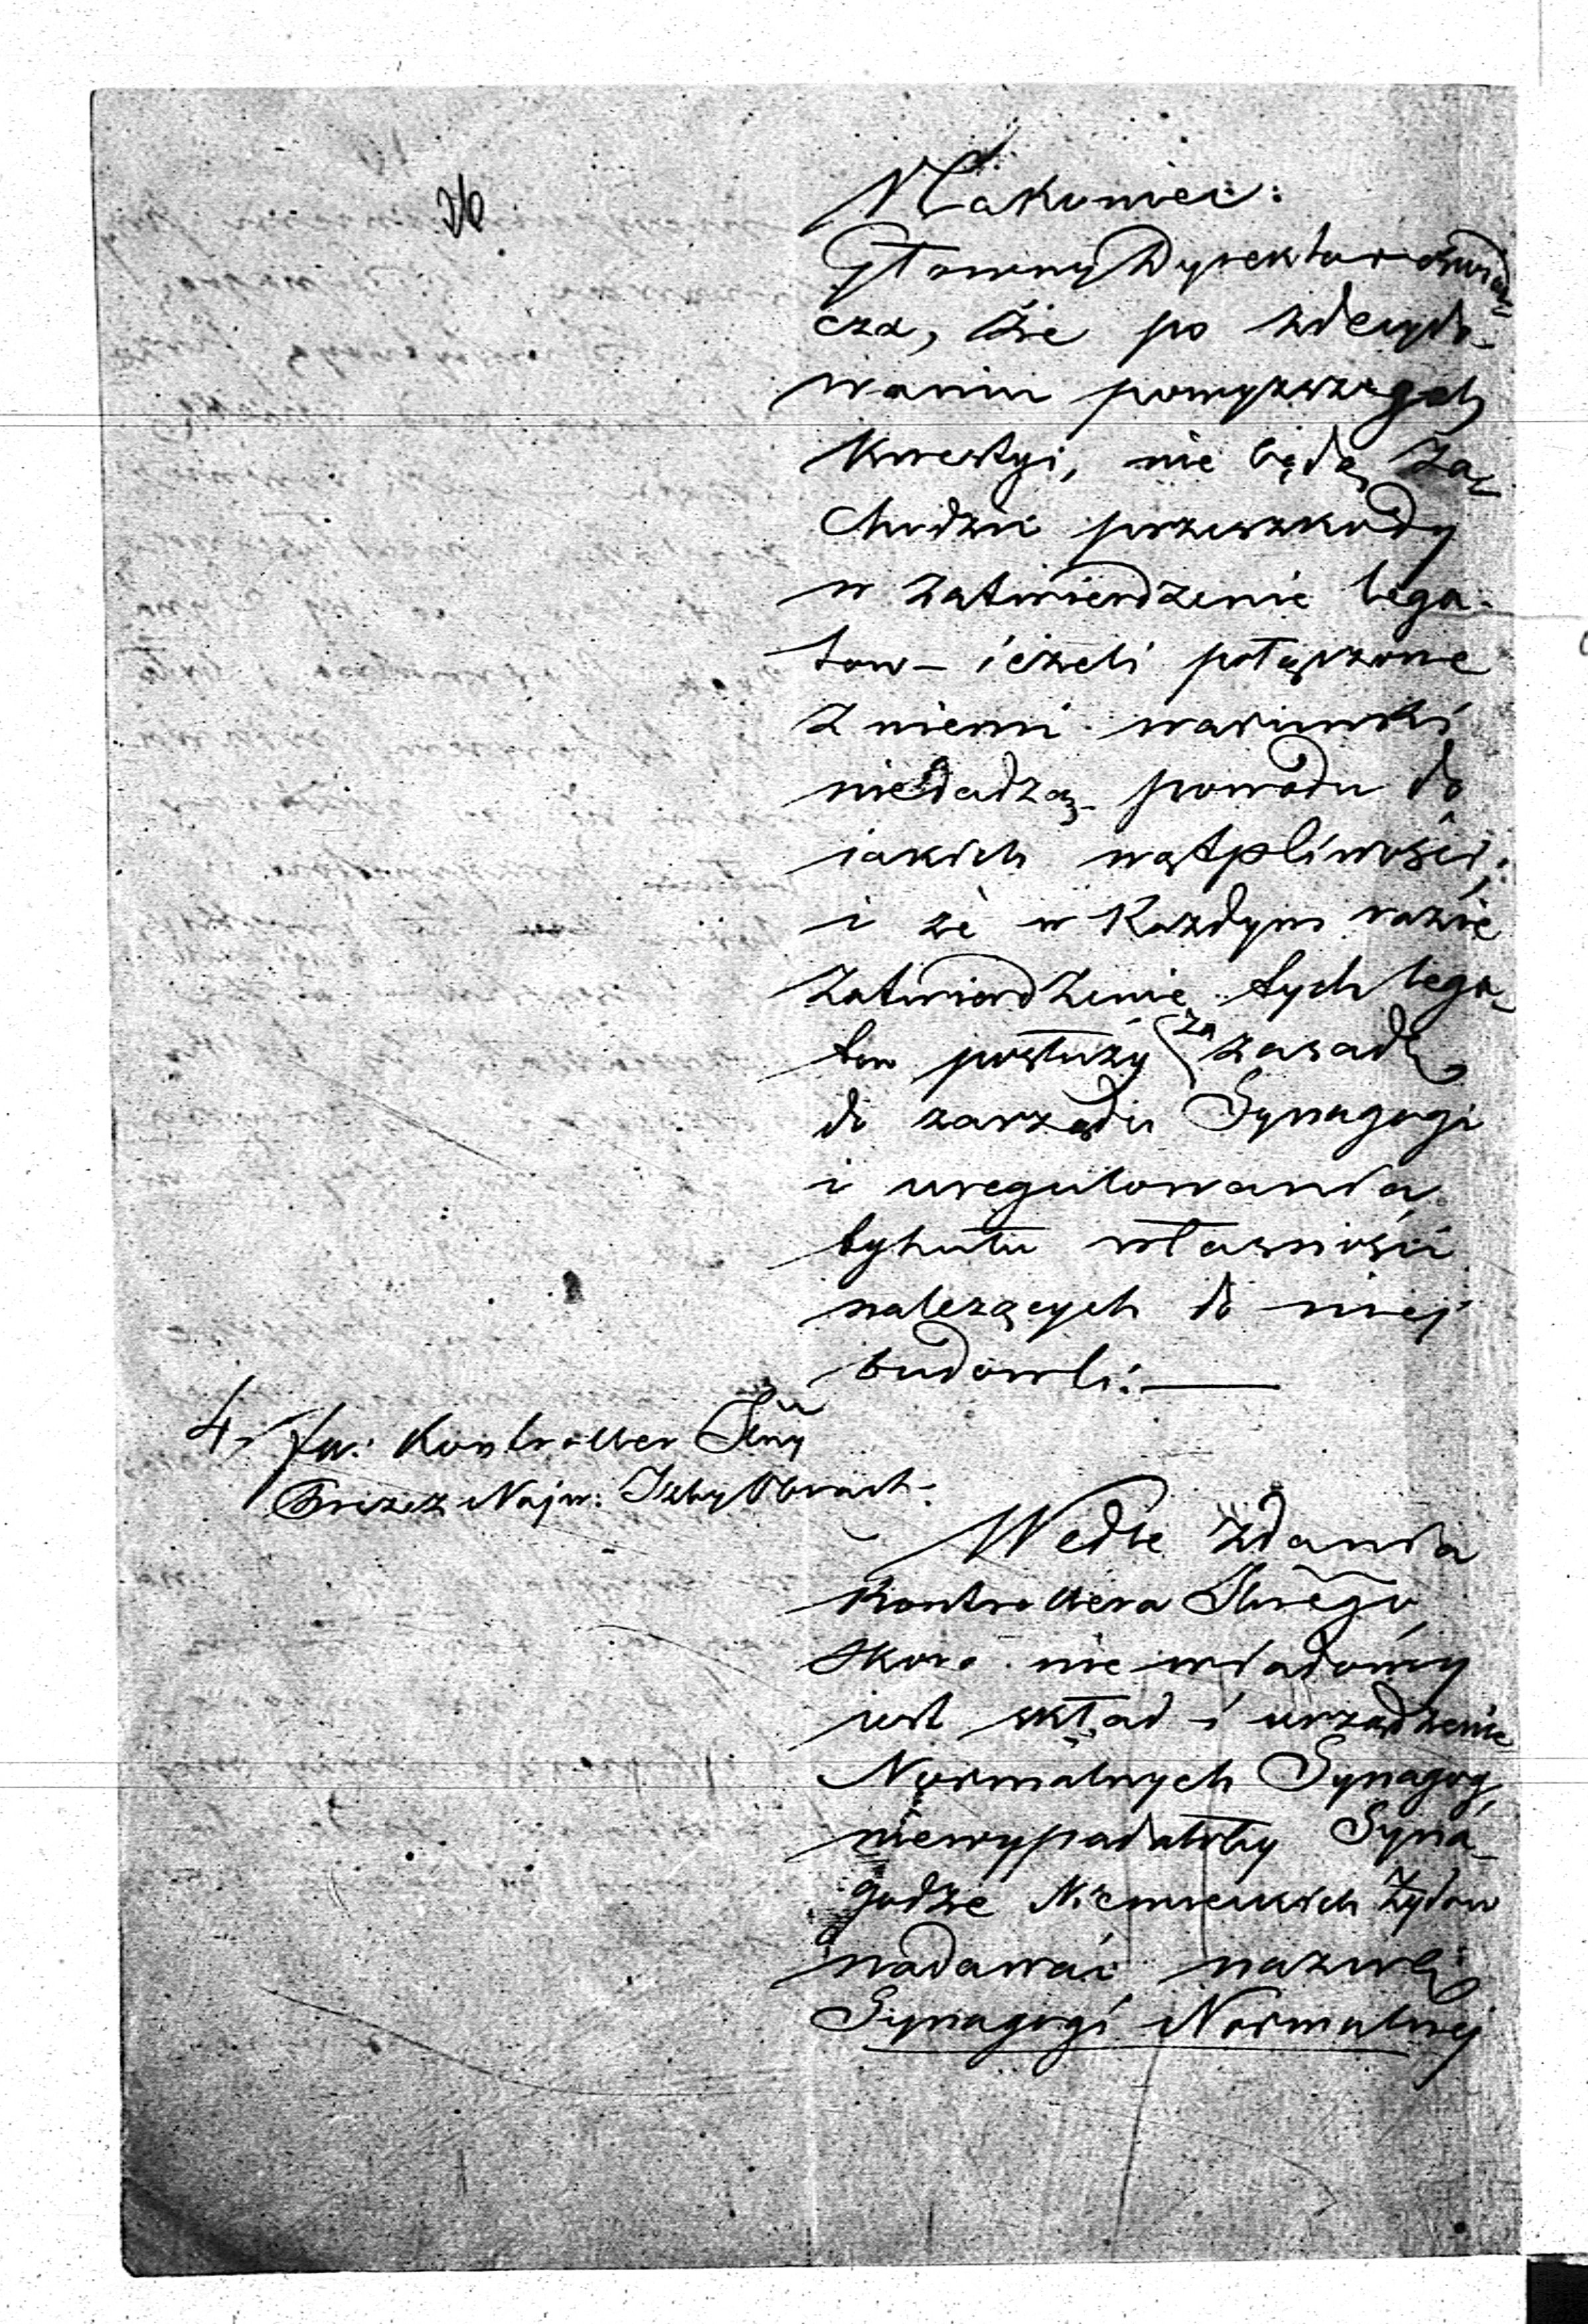 26
Nakoniec:
Głowny Dyrektor oswiad=
cza, że po zdecydo=
waniu powyższych
kwestyi, nie będą za=
chodzić przeszkody
w zatwierdzenie lega-
tow – ieżeli połączone
z niemi warunki
niedadzą powodu do
iakich wątpliwości;
i że w każdym razie
zatwierdzenie tych lega=
tow posłuży za zasadę
do zarządu Synagogi
i uregulowania
bytu własności
należących do niej
budowli: —
4. Kontroller Glny
Prezez Najw: Izby Obrach:
Wedle zdania
Kontrollera Glnego
skoro nie wiadomy
iest skład i urządzenie
Normalnych Synagog,
niewypadałoby Syna=
godze Niemieckich Żydow
nadawać nazwę
Synagogi Normalnej